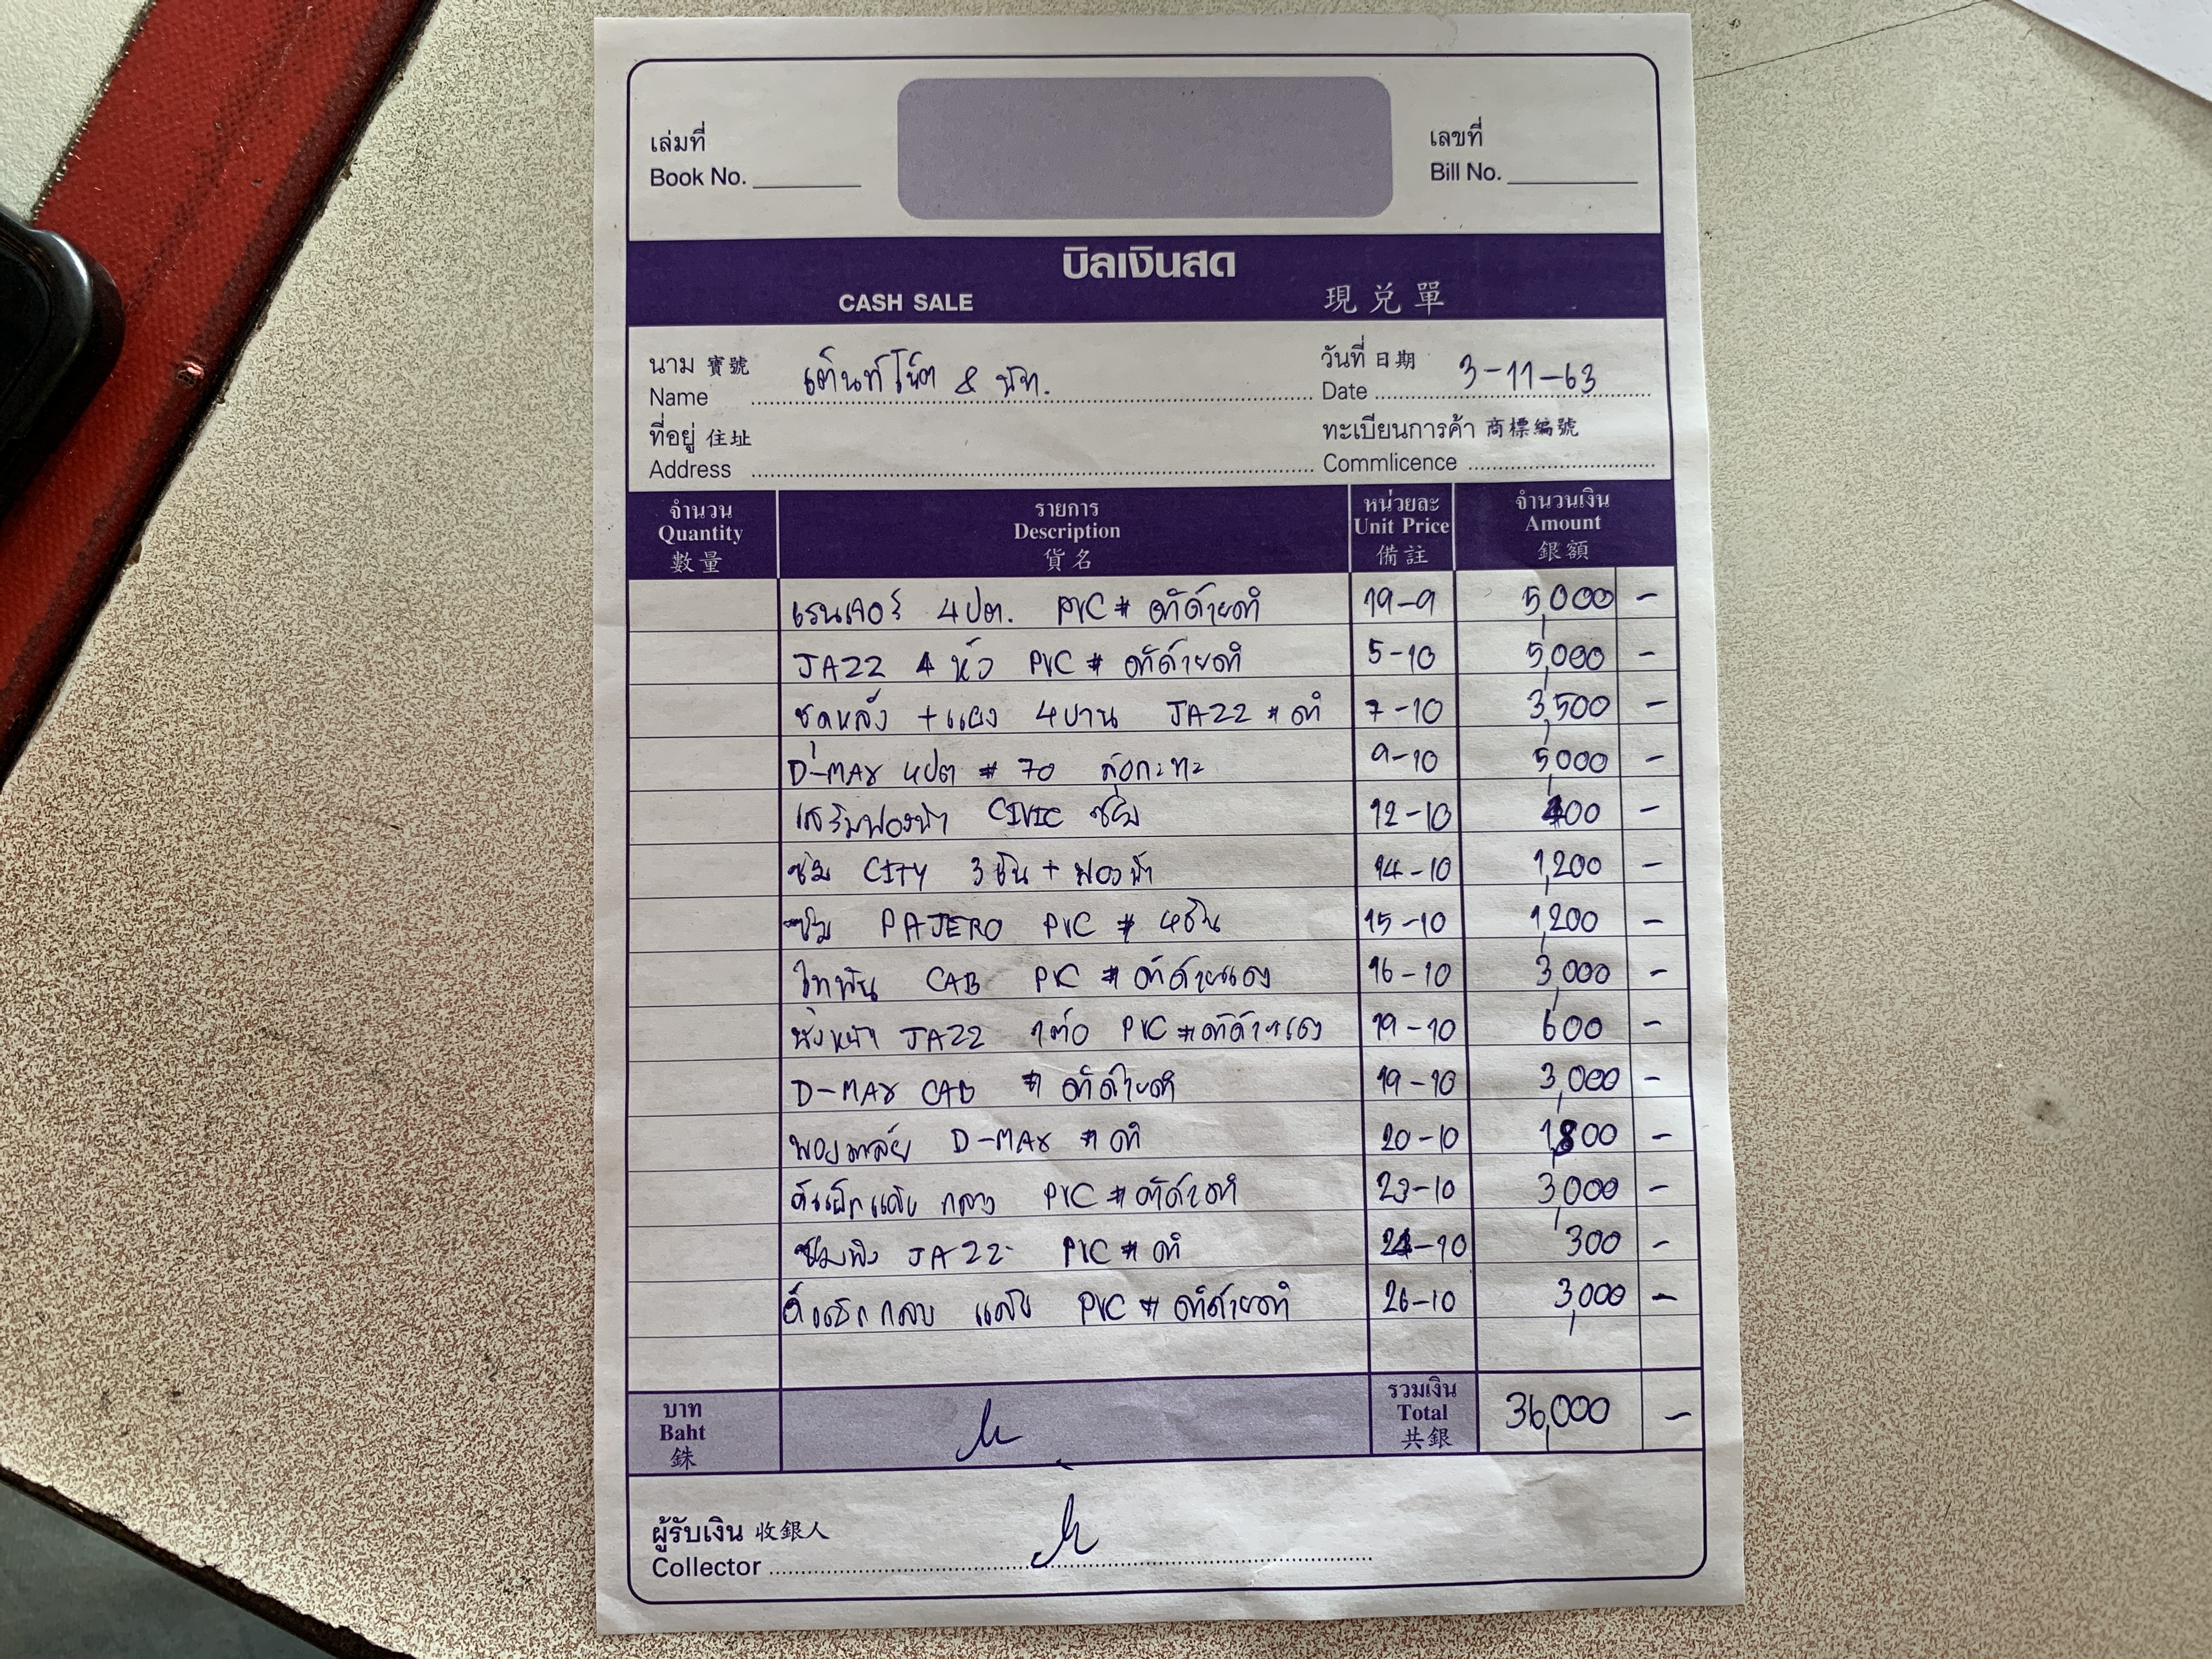 เล่มที่
Book No.
เลขที่
Bill No.
บิลเงินสด
CASH SALE 現兌單
นาม 寶號
Name เต็นท์โน๊ต & นัท.
วันที่ 日期
Date 3-11-63
ที่อยู่ 住址
Address
ทะเบียนการค้า 商標編號
Commlicence
จำนวน
Quantity
數量
รายการ
Description
貨名
หน่วยละ
Unit Price
備註
จำนวนเงิน
Amount
銀額
เรนเจอร์ 4ปต. PVC # ดำด้ายดำ 19-9 5,000 -
JAZZ 4 หัว PVC # ดำด้ายดำ 5-10 5,000 -
ชุดหลัง + แผง 4บาน JAZZ # ดำ 7-10 3,500 -
D-MAX 4ปต # 70 9-10 5,000 -
เสริมฟองน้ำ CIVIC ซ่อม 12-10 400 -
ซ่อม CITY 3 ชิ้น + ฟองน้ำ 14-10 1,200 -
ซ่อม PAJERO PVC # 4ชิ้น 15-10 1,200 -
ไททัน CAB PVC # ดำด้ายแดง 16-10 3,000 -
JAZZ 1ตัว PVC # ดำด้ายแดง 19-10 600 -
D-MAX CAB # ดำด้ายดำ 19-10 3,000 -
D-MAX # ดำ 20-10 1,800 -
PVC # ดำด้ายดำ 23-10 3,000 -
JAZZ PVC # ดำ 24-10 300 -
PVC # ดำด้ายดำ 26-10 3,000 -
บาท
Baht
銖
รวมเงิน
Total
共銀
36,000 -
ผู้รับเงิน 收銀人
Collector